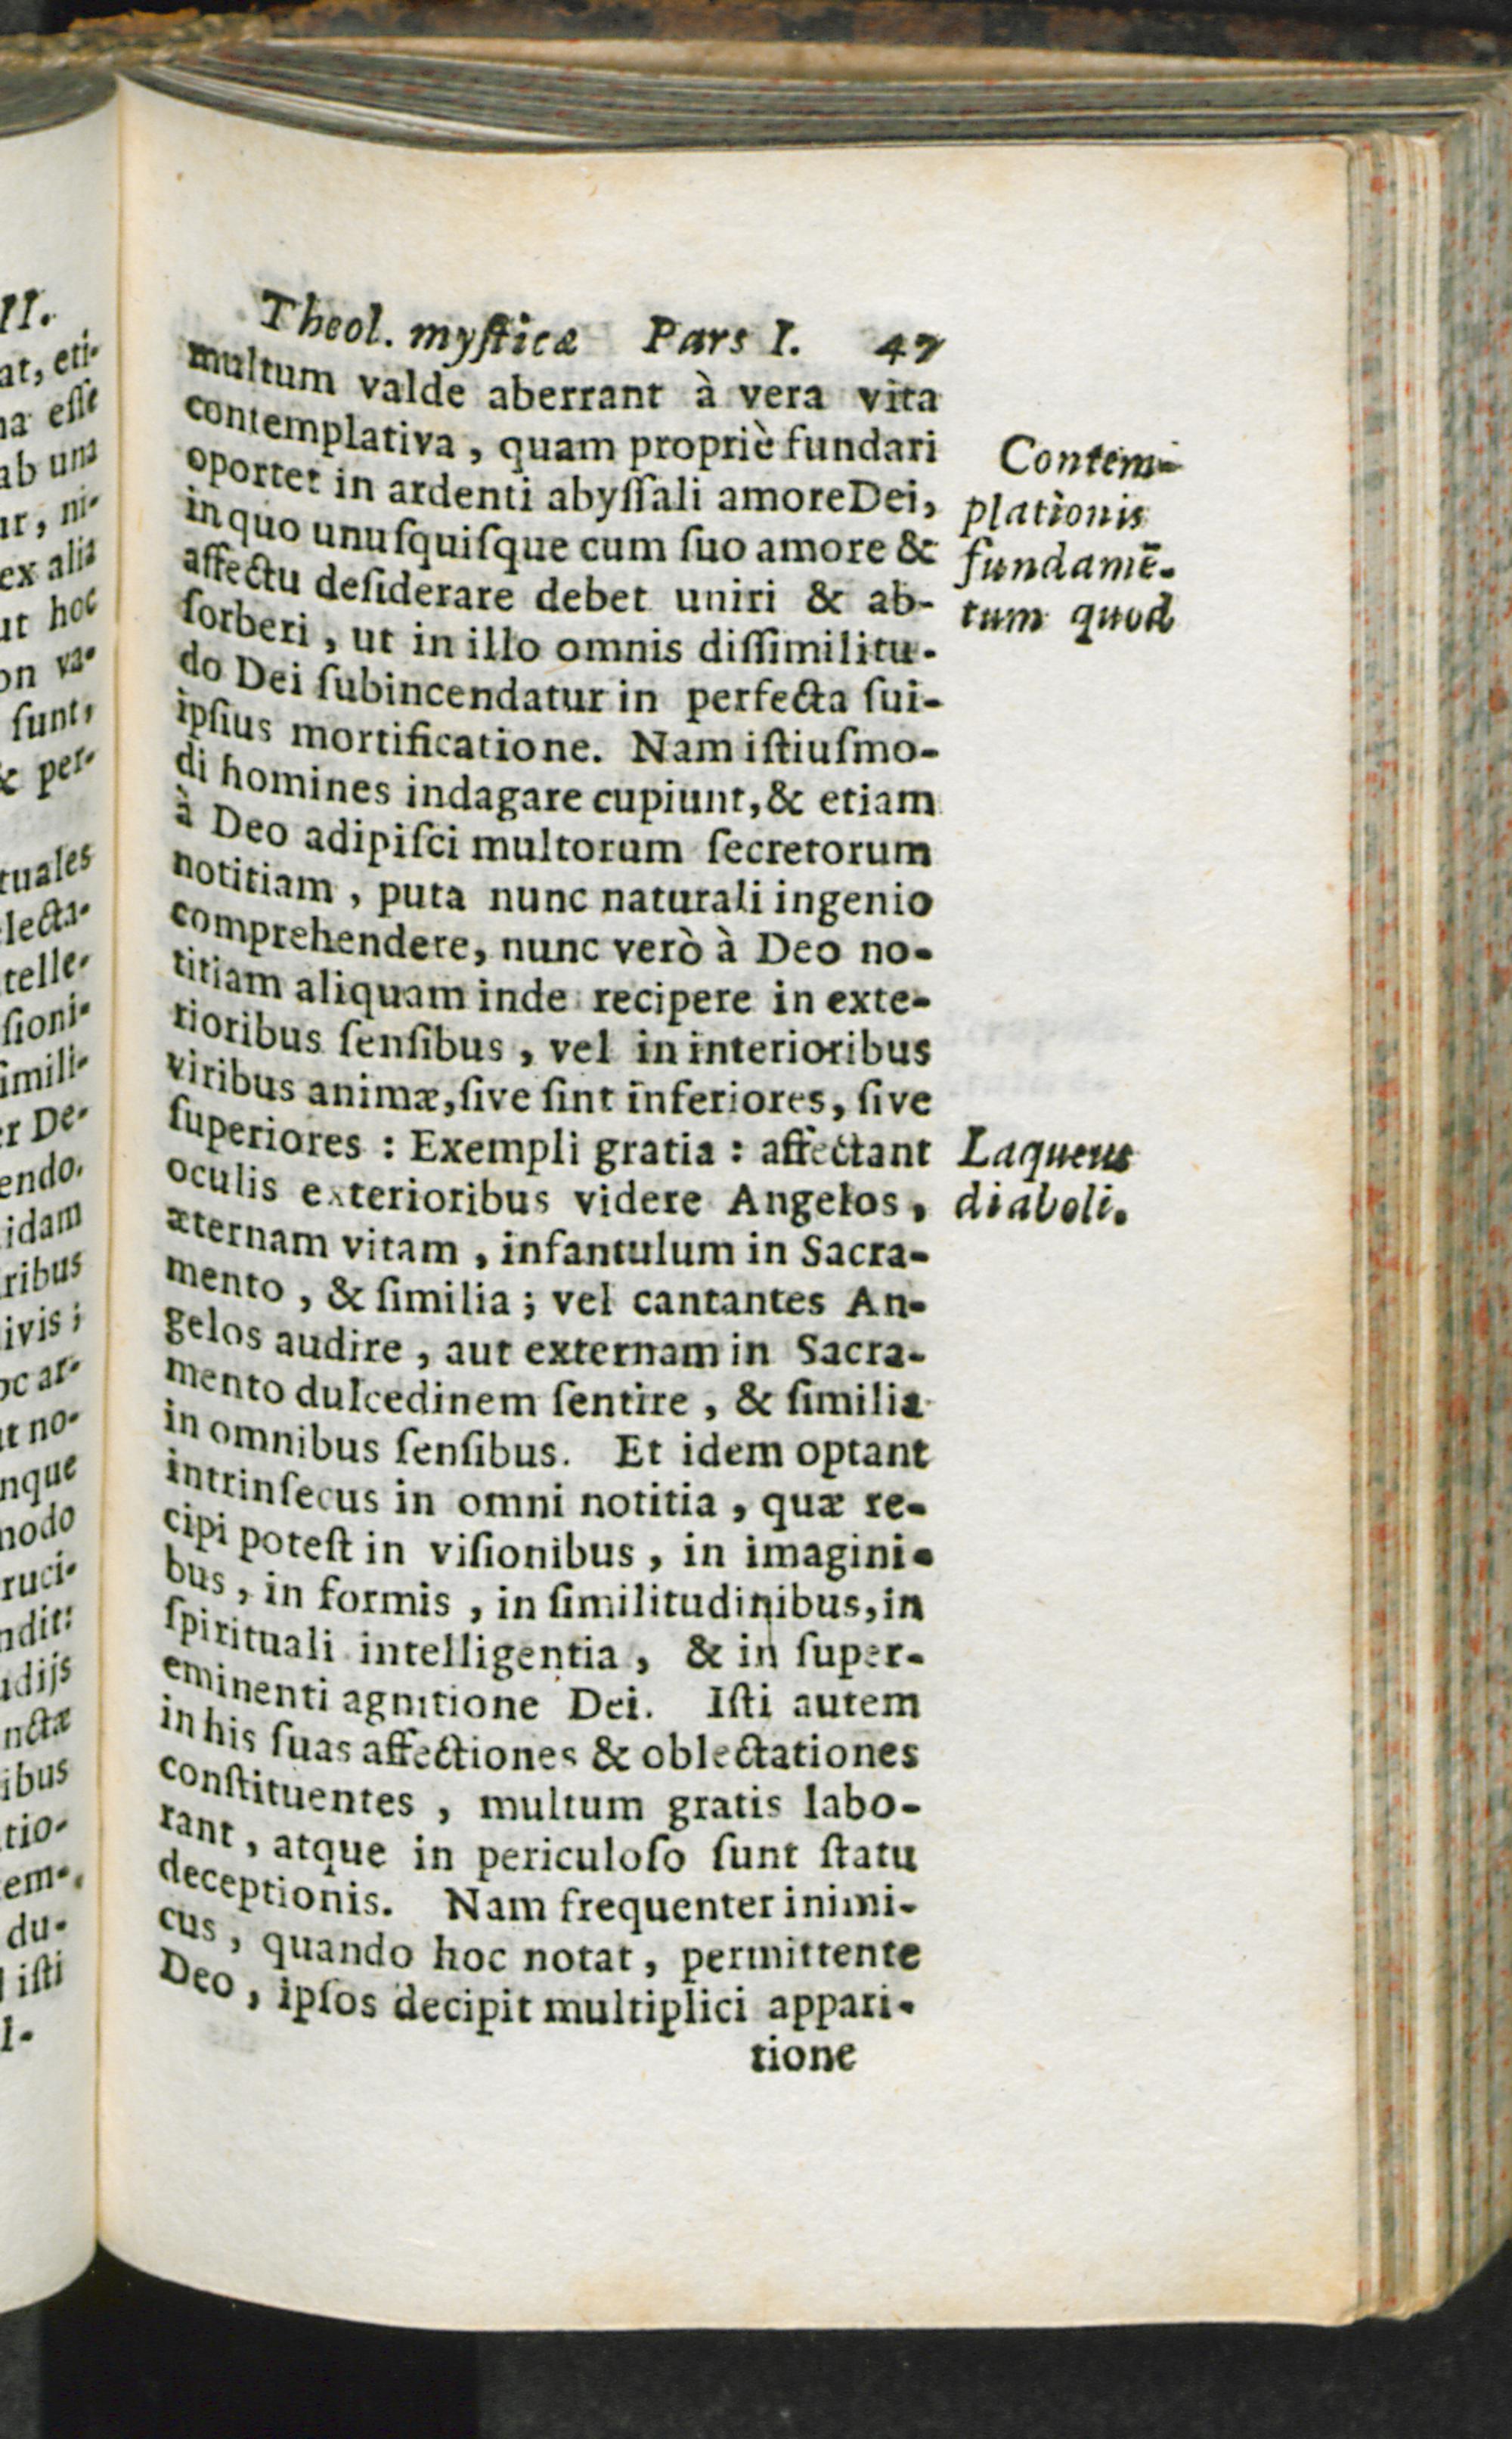 Theol. mysticæ Pars I. 47
multum valde aberrant à vera vita
contemplativa, quam propriè fundari
oportet in ardenti abyſſali amore Dei,
in quo unuſquiſque cum ſuo amore &
affectu deſiderare debet uniri & ab-
ſorberi, ut in illo omnis diſſimilitu-
do Dei ſubincendatur in perfecta ſui-
ipſius mortificatione. Nam iſtiuſmo-
di homines indagare cupiunt, & etiam
à Deo adipiſci multorum ſecretorum
notitiam, puta nunc naturali ingenio
comprehendere, nunc verò à Deo no-
titiam aliquam inde recipere in exte-
rioribus ſenſibus, vel in interioribus
viribus animæ, ſive ſint inferiores, ſive
ſuperiores : Exempli gratia : affectant
oculis exterioribus videre Angelos,
æternam vitam, infantulum in Sacra-
mento, & ſimilia; vel cantantes An-
gelos audire, aut externam in Sacra-
mento dulcedinem ſentire, & ſimilia
in omnibus ſenſibus. Et idem optant
intrinſecus in omni notitia, quæ re-
cipi poteſt in viſionibus, in imagini-
bus, in formis, in ſimilitudinibus, in
ſpirituali intelligentia, & in ſuper-
eminenti agnitione Dei. Iſti autem
in his ſuas affectiones & oblectationes
conſtituentes, multum gratis labo-
rant, atque in periculoſo ſunt ſtatu
deceptionis. Nam frequenter inimi-
cus, quando hoc notat, permittente
Deo, ipſos decipit multiplici appari-
tione
Contem-
plationis
fundamē-
tum quod
Laqueus
diaboli.
II.
at, eti-
na eſſe
ab una
ur, ni-
ex alia
ut hoc
on va-
ſunt,
& per-
tuales
lecta-
telle-
ſioni-
imili-
er De-
endo.
idam
ribus
ivis;
oc ar-
t no-
nque
nodo
ruci-
ndit:
udijs
nctæ
ibus
tio-
em-
du-
iſti
l-